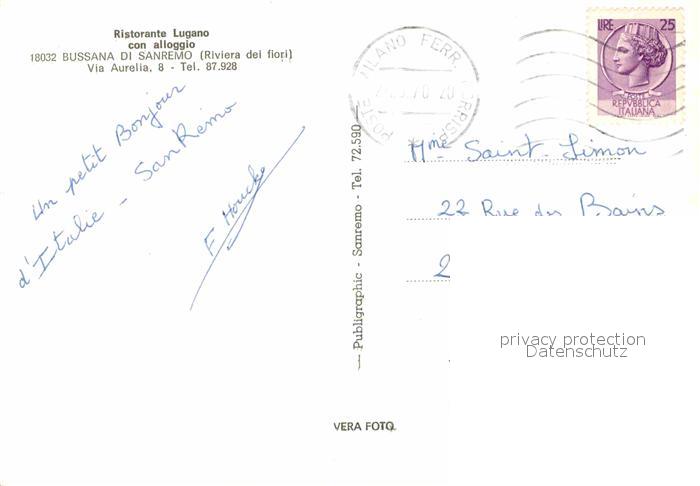 Ristorante Lugano
con alloggio
18032 BUSSANA DI SANREMO (Riviera dei fiori)
Via Aurelia, 8 - Tel. 87.928
Un petit Bonjour
d'Italie - SanRemo
F Houcke
Publigraphic - Sanremo - Tel. 72.590
VERA FOTO
MILANO FERR. CORRISP
POSTE
LIRE 25
POSTE
REPVBBLICA
ITALIANA
Mme Saint-Limon
22 Rue des Bains
2
privacy protection
Datenschutz